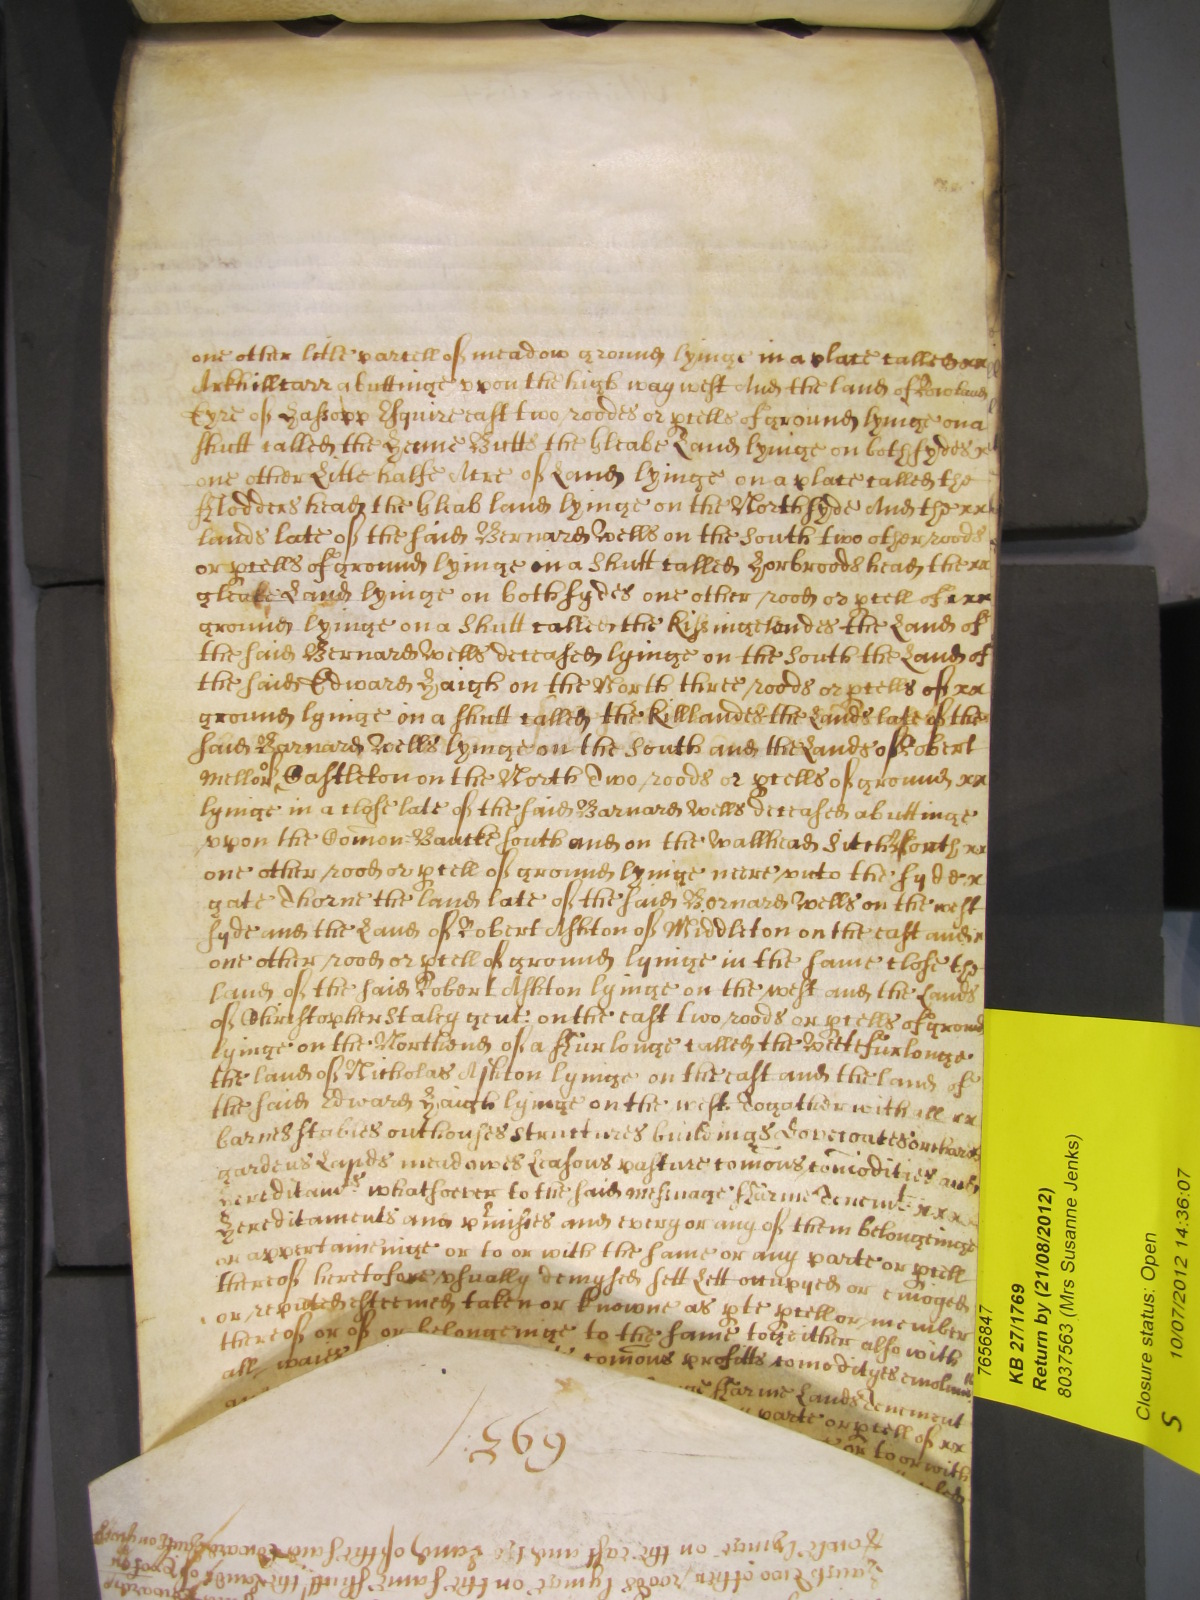 one other litle parcell of meadow ground lyinge in a place called xx
Arkhillcarr abuttinge vpon the high way west And the land of Rowland
Eyre of Hassopp Esquire east two roodes or pcells of ground lyinge on a
shutt called the Henne Butts the gleabe Land lyinge on both sydes x
one other Litle halfe Acre of Land lyinge on a place called the
Flodders head the gleab land lyinge on the North syde And the xx
lands late of the said Bernard Wells on the South two other roods
or pcells of ground lyinge on a Shutt called Horbroods head the xx
gleabe Land lyinge on both sydes one other rood or pcell of xxx
ground lyinge on a Shutt called the Kissingelandes the Land of
the said Bernard Wells deceased lyinge on the South the Land of
the said Edward Haigh on the North three roods or pcells of xx
ground lyinge on a shutt called the Killlandes the Lands late of the
said Barnard Wells lyinge on the South and the Lands of Robert
Mellor of Castleton on the North Two roods or pcells of ground xx
lyinge in a close late of the said Barnard Wells deceased abuttinge
vpon the Comon Bancke South and on the Wallhead Sitch North xx
one other rood or pcell of ground lyinge neere vnto the syde x
gate Thorne the land late of the said Bernard Wells on the west
syde and the Land of Robert Ashton of Middleton on the east and x
one other rood or pcell of ground lyinge in the same close the
land of the said Robert Ashton lyinge on the west and the Lands
of Christopher Staley gent: on the east two roods or pcells of ground
lyinge on the North end of a Furlonge called the Weetefurlonge
the land of Nicholas Ashton lyinge on the east and the land of
the said Edward Haigh lyinge on the west Togather with all xx
barnes stables outhouses Structures buildings Dovecoates orchards
gardens Lands meadowes Leasows pasture comons comodities and
hereditamts whatsoever to the said messuage Farme Tenemt xxx
Hereditaments and pmisses and every or any of them belongeinge
or appertaineinge or to or with the same or any parte or pcell
thereof heretofore vsually demysed sett Lett occupyed or enioyed
or reputed esteemed taken or knowne as pte pcell or member
thereof or of or belongeinge to the same togeither also with
all waies comons profitts comodityes emolum
Farme Lands Tenement
parte or pcell of xx
or to or with
693
Howle lyinge on the east and the Land of the said Edward
Land two other roods lyinge on the same shutt the Lands of
7656847
KB 27/1769
Return by (21/08/2012)
8037563 (Mrs Susanne Jenks)
Closure status: Open
10/07/2012 14:36:07
S